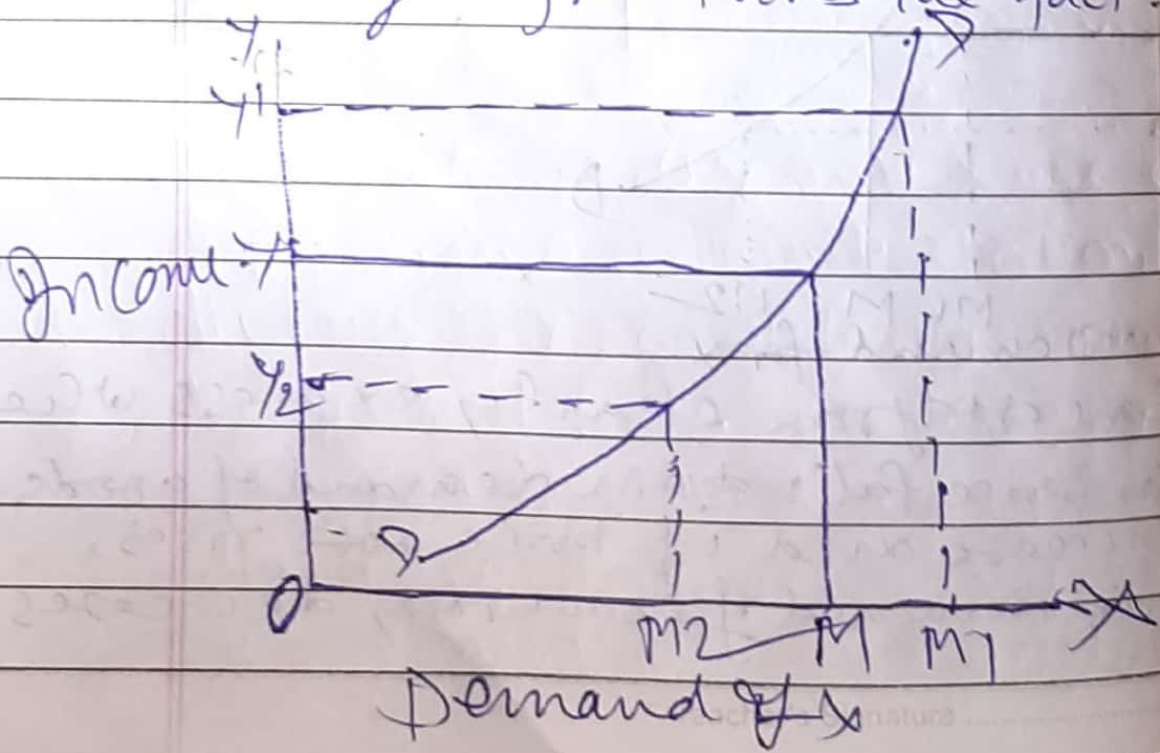 Y
Y1
D
Income Y
Y2
D
O
M2 M M1 X
Demand of X